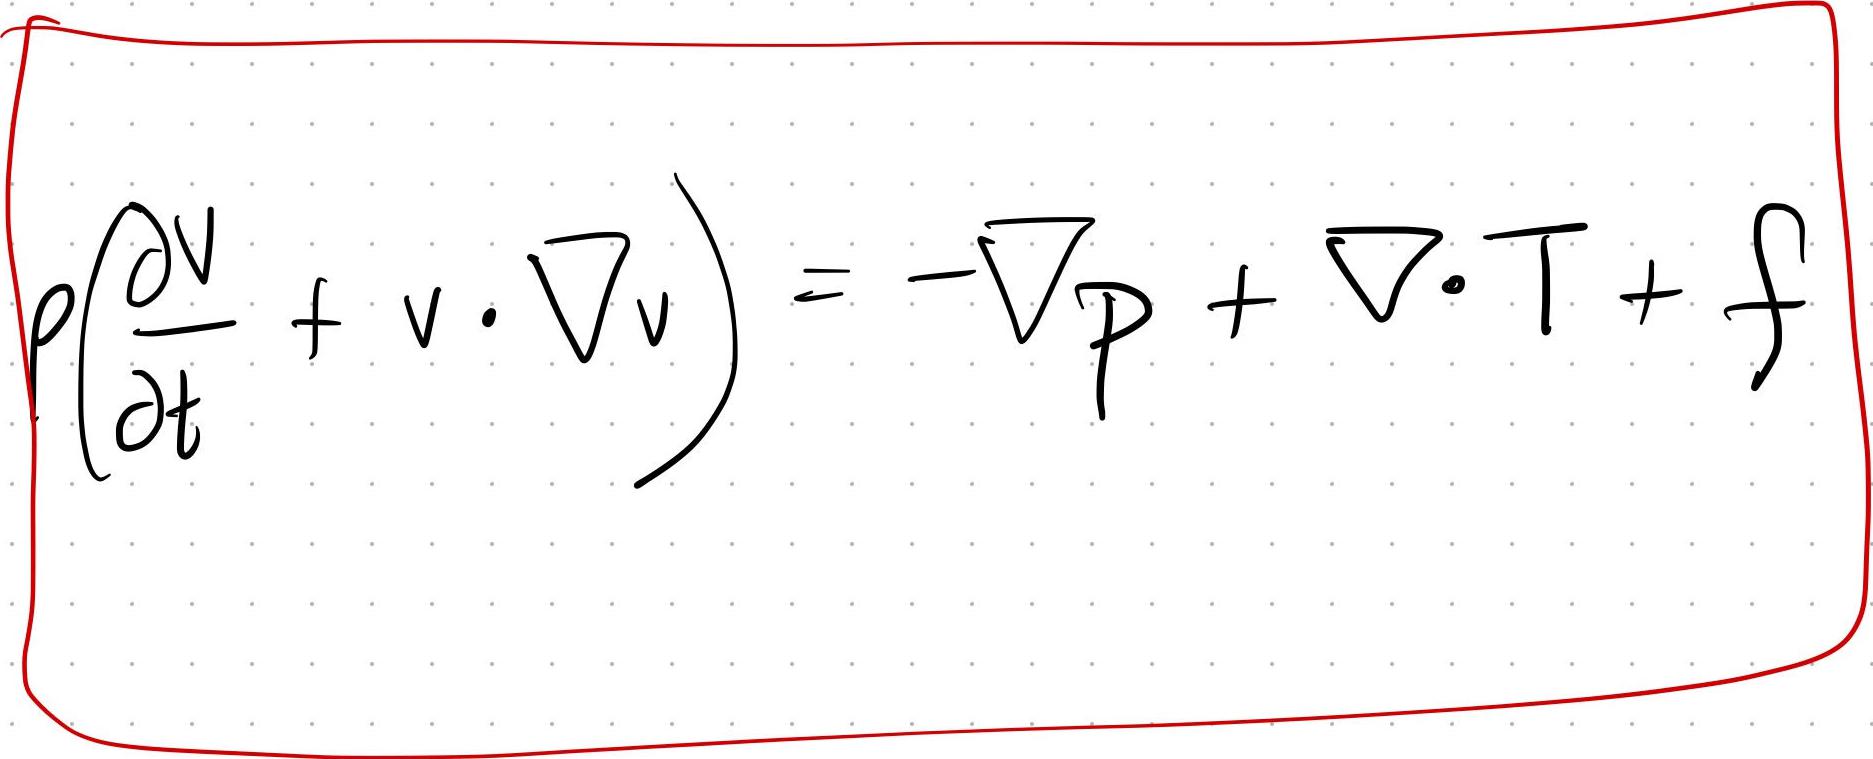 ρ(∂v/∂t + v · ∇v) = -∇p + ∇ · T + f